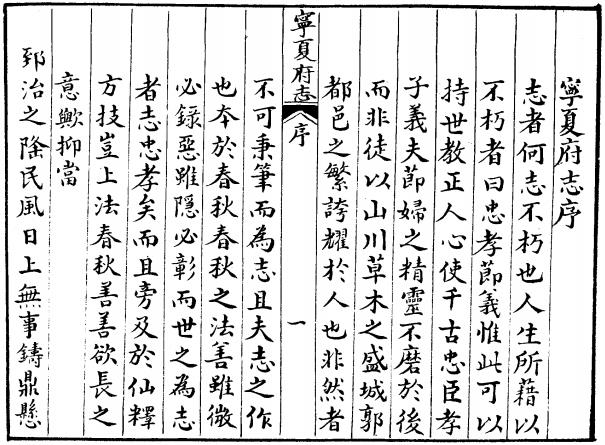 寧夏府志序
志者何志不朽也人生所藉以
不朽者曰忠孝節義惟此可以
持世教正人心使千古忠臣孝
子義夫節婦之精靈不磨於後
而非徒以山川草木之盛城郭
都邑之繁誇耀於人也非然者
寧夏府志 序 一
不可秉筆而為志且夫志之作
也本於春秋春秋之法善雖微
必錄惡雖隱必彰而世之為志
者志忠孝矣而且旁及於仙釋
方技豈上法春秋善善欲長之
意歟抑當
郅治之隆民風日上無事鑄鼎懸